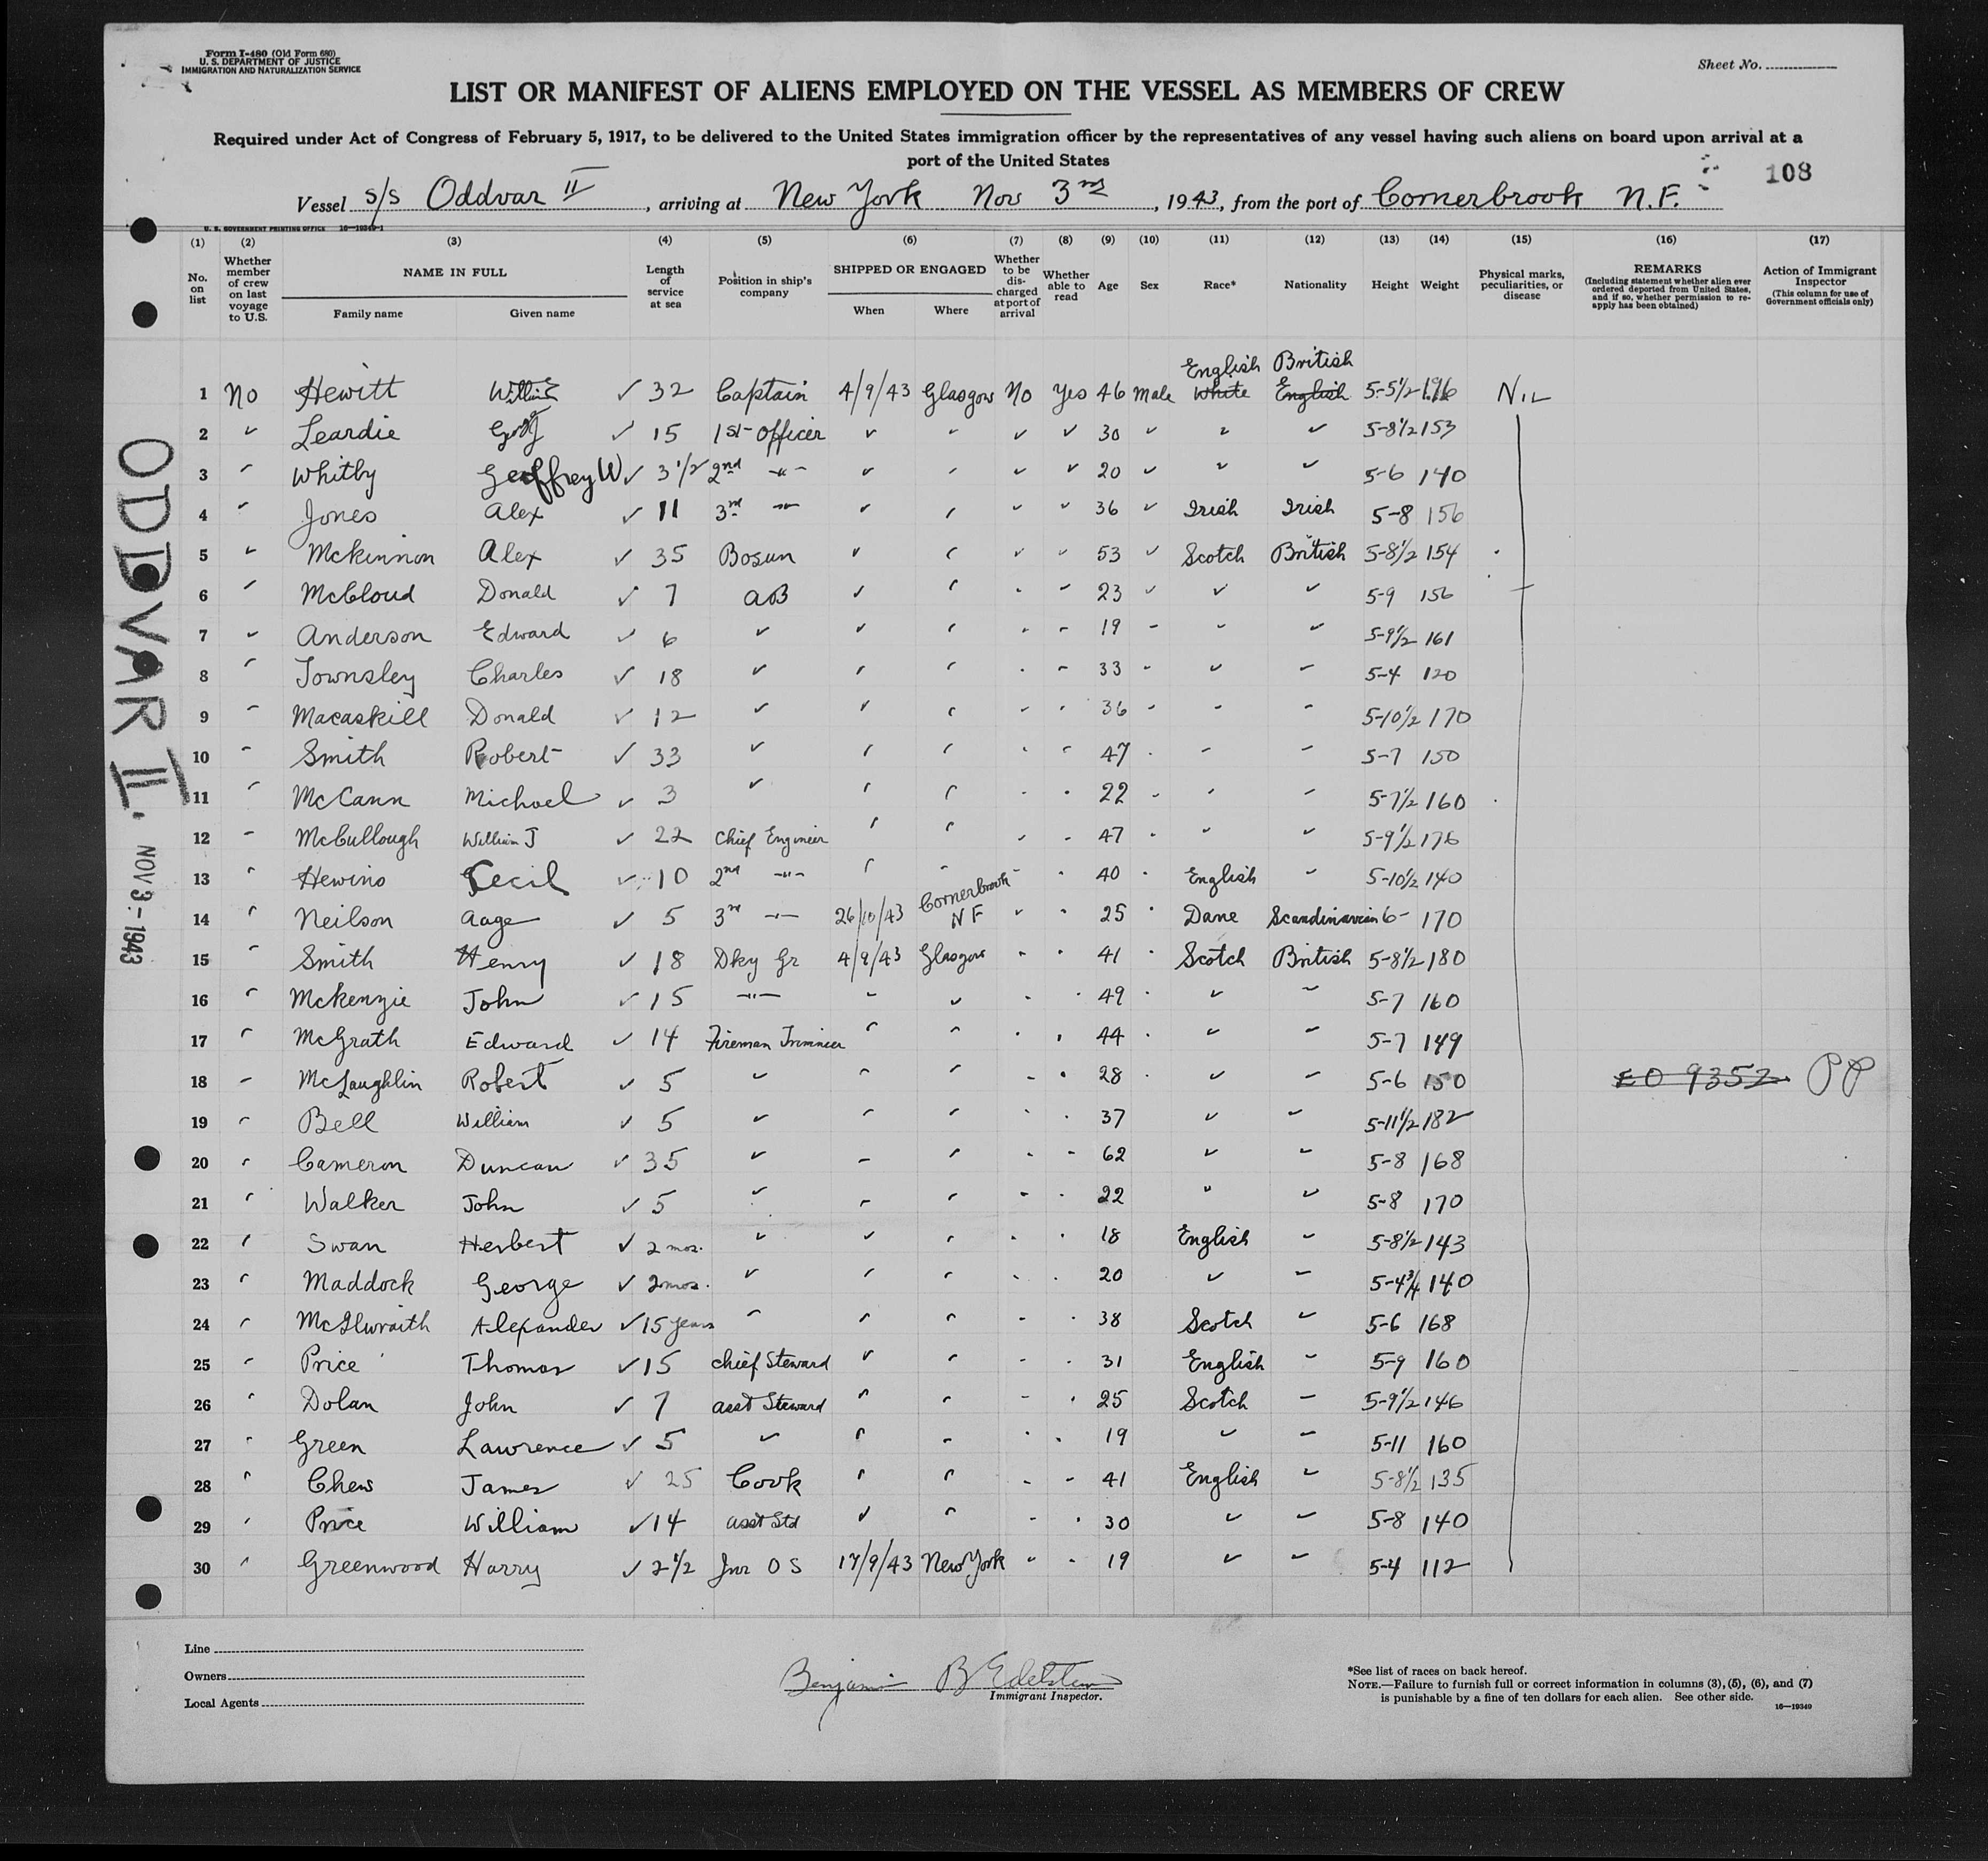 Form I-480 (Old Form 680)
U. S. DEPARTMENT OF JUSTICE
IMMIGRATION AND NATURALIZATION SERVICE
Sheet No.
LIST OR MANIFEST OF ALIENS EMPLOYED ON THE VESSEL AS MEMBERS OF CREW
Required under Act of Congress of February 5, 1917, to be delivered to the United States immigration officer by the representatives of any vessel having such aliens on board upon arrival at a
port of the United States
108
Vessel s/s Oddvar II, arriving at New York Nov 3rd, 1943, from the port of Cornerbrook N.F.
U. S. GOVERNMENT PRINTING OFFICE 16—19340-1
(1) (2) (3) (4) (5) (6) (7) (8) (9) (10) (11) (12) (13) (14) (15) (16) (17)
No. on list
Whether member of crew on last voyage to U.S.
NAME IN FULL
Family name Given name
Length of service at sea
Position in ship's company
SHIPPED OR ENGAGED
When Where
Whether to be discharged at port of arrival
Whether able to read
Age
Sex
Race*
Nationality
Height
Weight
Physical marks, peculiarities, or disease
REMARKS
(Including statement whether alien ever ordered deported from United States, and if so, whether permission to reapply has been obtained)
Action of Immigrant Inspector
(This column for use of Government officials only)
English British
1 No Hewitt ✓ 32 Captain 4/9/43 Glasgow No Yes 46 Male White English 5-5½ Nil
2 ✓ Leardie ✓ 15 1st Officer ✓ ✓ ✓ ✓ 30 ✓ ✓ ✓ 5-8½ 153
3 ✓ Whitby Geoffrey W ✓ 3½ 2nd -"- ✓ ✓ ✓ ✓ 20 ✓ ✓ ✓ 5-6 140
4 ✓ Jones Alex ✓ 11 3rd -"- ✓ ✓ ✓ ✓ 36 ✓ Irish Irish 5-8 156
5 ✓ McKinnon Alex ✓ 35 Bosun ✓ ✓ ✓ ✓ 53 ✓ Scotch British 5-8½ 154
6 ✓ McCloud Donald ✓ 7 AB ✓ ✓ ✓ ✓ 23 ✓ ✓ ✓ 5-9 156
7 ✓ Anderson Edward ✓ 6 ✓ ✓ ✓ ✓ ✓ 19 ✓ ✓ ✓ 5-9½ 161
8 ✓ Townsley Charles ✓ 18 ✓ ✓ ✓ ✓ ✓ 33 ✓ ✓ ✓ 5-4 120
9 ✓ Macaskill Donald ✓ 12 ✓ ✓ ✓ ✓ ✓ 36 ✓ ✓ ✓ 5-10½ 170
10 ✓ Smith Robert ✓ 33 ✓ ✓ ✓ ✓ ✓ 47 ✓ ✓ ✓ 5-7 150
11 ✓ McCann Michael ✓ 3 ✓ ✓ ✓ ✓ ✓ 22 ✓ ✓ ✓ 5-7½ 160
12 ✓ McCullough William J ✓ 22 Chief Engineer ✓ ✓ ✓ ✓ 47 ✓ ✓ ✓ 5-9½ 176
13 ✓ Hewins Cecil ✓ 10 2nd -"- ✓ ✓ ✓ ✓ 40 ✓ English ✓ 5-10½ 140
14 ✓ Neilson Aage ✓ 5 3rd -"- 26/10/43 Cornerbrook NF ✓ ✓ 25 ✓ Dane Scandinavian 6- 170
15 ✓ Smith Henry ✓ 18 Dky Gr 4/9/43 Glasgow ✓ ✓ 41 ✓ Scotch British 5-8½ 180
16 ✓ McKenzie John ✓ 15 -"- ✓ ✓ ✓ ✓ 49 ✓ ✓ ✓ 5-7 160
17 ✓ McGrath Edward ✓ 14 Fireman Trimmer ✓ ✓ ✓ ✓ 44 ✓ ✓ ✓ 5-7 149
18 ✓ McLaughlin Robert ✓ 5 ✓ ✓ ✓ ✓ ✓ 28 ✓ ✓ ✓ 5-6 150 EO 9352 PP
19 ✓ Bell William ✓ 5 ✓ ✓ ✓ ✓ ✓ 37 ✓ ✓ 5-11½ 182
20 ✓ Cameron Duncan ✓ 35 ✓ ✓ ✓ ✓ ✓ 62 ✓ ✓ 5-8 168
21 ✓ Walker John ✓ 5 ✓ ✓ ✓ ✓ ✓ 22 ✓ ✓ 5-8 170
22 ✓ Swan Herbert ✓ 2 mos. ✓ ✓ ✓ ✓ ✓ 18 English ✓ 5-8½ 143
23 ✓ Maddock George ✓ 2 mos. ✓ ✓ ✓ ✓ ✓ 20 ✓ ✓ 5-4¾ 140
24 ✓ McIlwraith Alexander ✓ 15 years ✓ ✓ ✓ ✓ ✓ 38 Scotch ✓ 5-6 168
25 ✓ Price Thomas ✓ 15 Chief Steward ✓ ✓ ✓ ✓ 31 English ✓ 5-9 160
26 ✓ Dolan John ✓ 7 asst Steward ✓ ✓ ✓ ✓ 25 Scotch ✓ 5-9½ 146
27 ✓ Green Lawrence ✓ 5 ✓ ✓ ✓ ✓ ✓ 19 ✓ ✓ 5-11 160
28 ✓ Chew James ✓ 25 Cook ✓ ✓ ✓ ✓ 41 English ✓ 5-8½ 135
29 ✓ Price William ✓ 14 asst Std ✓ ✓ ✓ ✓ 30 ✓ ✓ 5-8 140
30 ✓ Greenwood Harry ✓ 2½ Jnr O S 17/9/43 New York ✓ ✓ 19 ✓ ✓ 5-4 112
ODDVAR II. NOV 3 - 1943
Line
Owners
Local Agents
Benjamin B Edelstein
Immigrant Inspector.
*See list of races on back hereof.
NOTE.—Failure to furnish full or correct information in columns (3), (5), (6), and (7)
is punishable by a fine of ten dollars for each alien. See other side.
16—19340